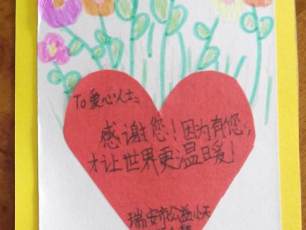 To 爱心人士:
感谢您!因为有您,
才让世界更温暖!
瑞安市公益小天